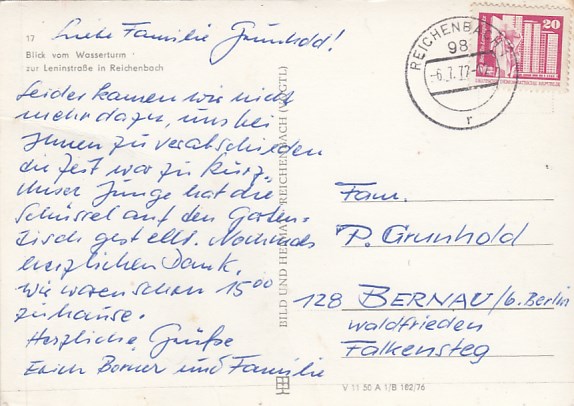 Liebe Familie Grunhold!
17
Blick vom Wasserturm
zur Leninstraße in Reichenbach
Leider kamen wir nicht
mehr dazu, uns bei
Ihnen zu verabschieden
die Zeit war zu kurz.
Unser Junge hat die
Schüssel auf den Garten-
tisch gestellt. Nochmals
herzlichen Dank.
Wir waren schon 15 00
zuhause.
Herzliche Grüße
Erich Borner und Familie
BILD UND HEIMAT REICHENBACH (VOGTL)
REICHENBACH
98
-6.7.77
r
20
DEUTSCHE DEMOKRATISCHE REPUBLIK
Fam.
P. Grunhold
128 BERNAU/b. Berlin
Waldfrieden
Falkensteg
V 11 50 A 1/B 162/76